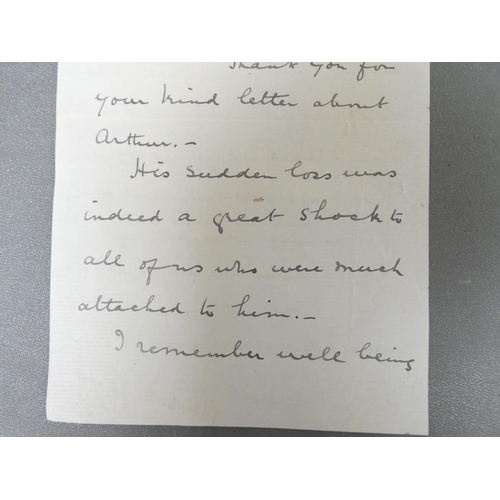 Thank you for
your kind letter about
Arthur. –
His sudden loss was
indeed a great shock to
all of us who were much
attached to him. –
I remember well being